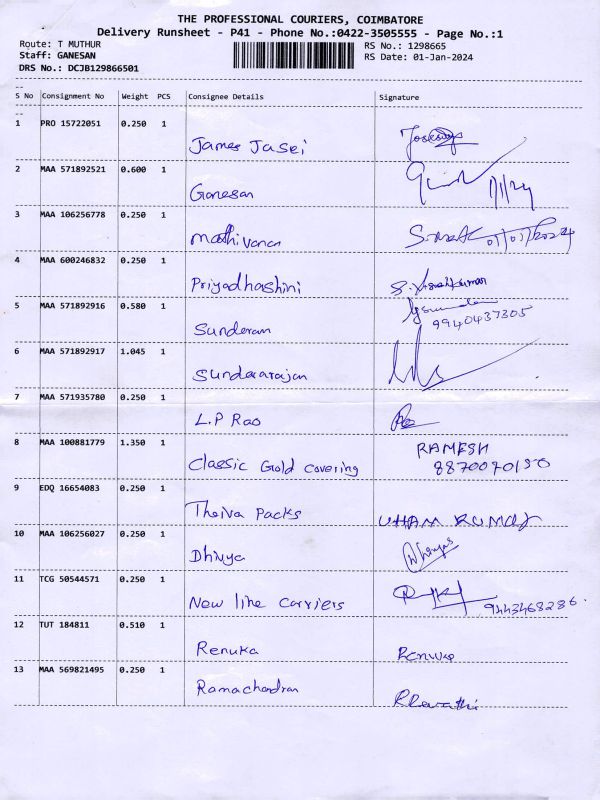 THE PROFESSIONAL COURIERS, COIMBATORE
Delivery Runsheet - P41 - Phone No.:0422-3505555 - Page No.:1
Route: T MUTHUR RS No.: 1298665
Staff: GANESAN RS Date: 01-Jan-2024
DRS No.: DCJB129866501
S No Consignment No Weight PCS Consignee Details Signature
1 PRO 15722051 0.250 1
James Jasei
2 MAA 571892521 0.600 1
Ganesan 1/1/24
3 MAA 106256778 0.250 1
mathivanan 01/01/2024
4 MAA 600246832 0.250 1
Priyadhashini
5 MAA 571892916 0.580 1
Sunderam 9940437305
6 MAA 571892917 1.045 1
Sundararajan
7 MAA 571935780 0.250 1
L.P Rao
8 MAA 100881779 1.350 1 RAMESH
Classic Gold covering 8870070150
9 EDQ 16654083 0.250 1
Theiva Packs
10 MAA 106256027 0.250 1
Dhivya
11 TCG 50544571 0.250 1
New line Carriers 9443468286.
12 TUT 184811 0.510 1
Renuka Renuka
13 MAA 569821495 0.250 1
Ramachandran